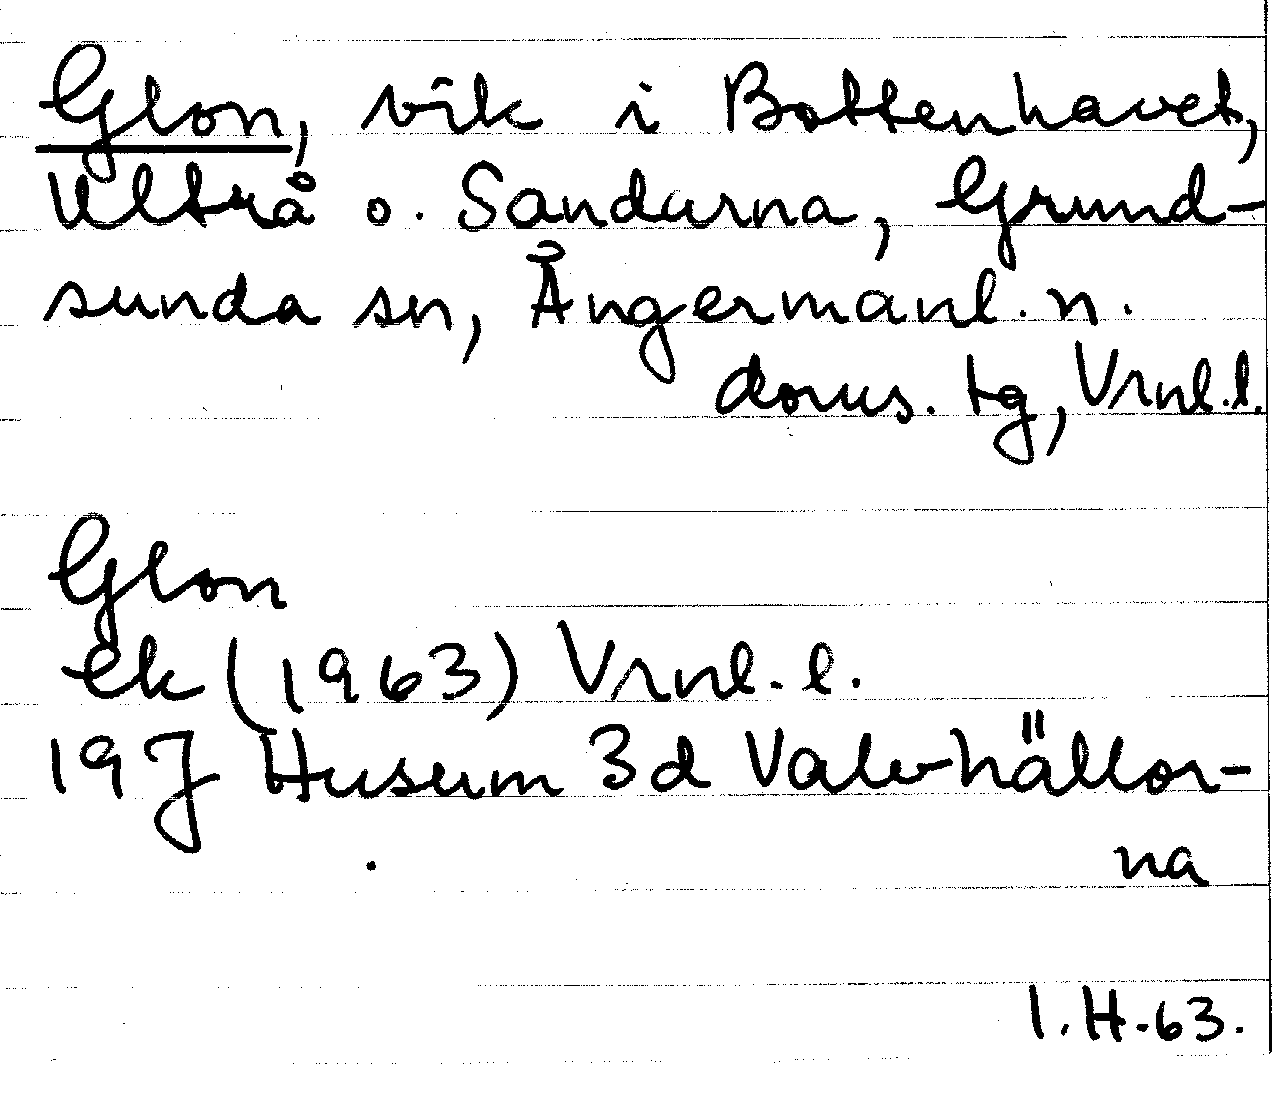 Glon, vik i Bottenhavet,
Ultrå o. Sandarna, Grund-
sunda sn, Ångermanl. n.
doms. tg, Vrnl. l.
Glon
ek (1963) Vrnl. l.
19J Husum 3d Valvhällor-
na
I.H.63.